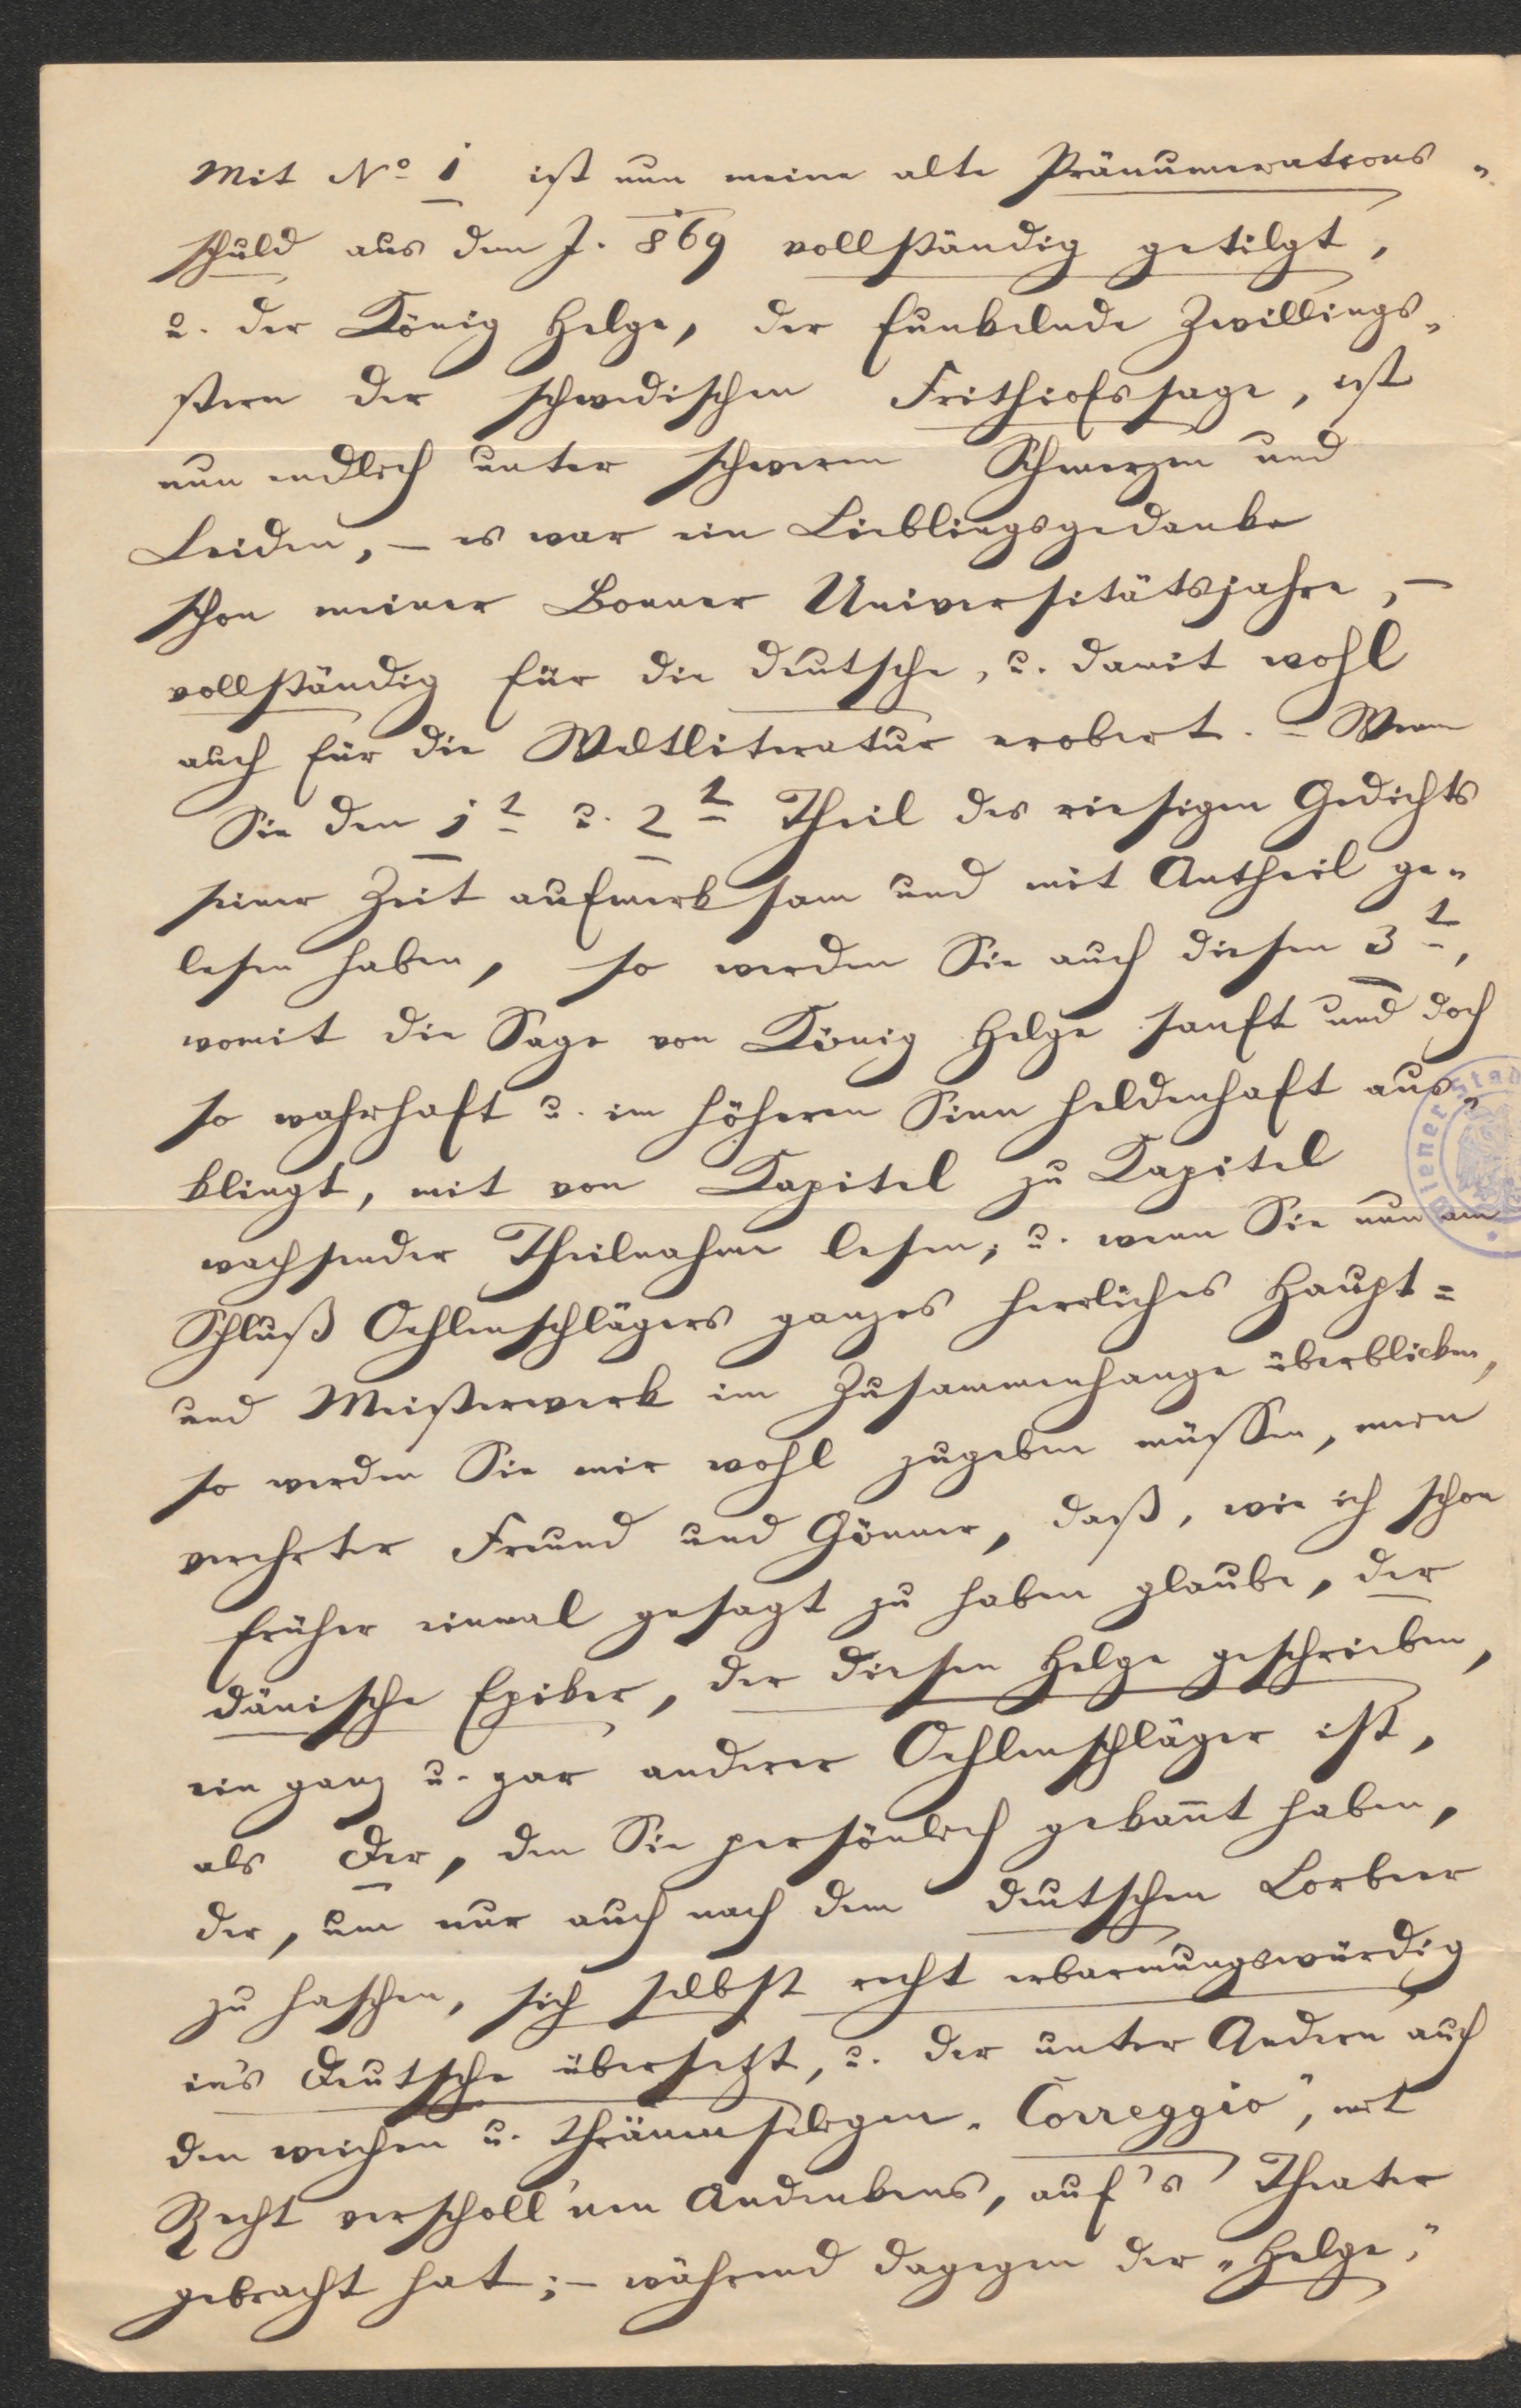 Mit No 1 ist nun meine alte Pränumerations„
schuld aus dem J. 869 vollständig getilgt,
u. der König Helge, der funkelnde Zwillings„
stern der schwedischen Frithiofssage, ist
nun endlich unter schweren Schmerzen und
Leiden, – es war ein Lieblingsgedanke
schon meiner Bonner Universitätsjahre, –
vollständig für die deutsche, u. damit wohl
auch für die Weltliteratur erobert. – Wenn
Sie den 1t u. 2t Theil des riesigen Gedichts
seiner Zeit aufmerksam und mit Antheil ge„
lesen haben, so werden Sie auch diesen 3t,
womit die Sage von König Helge sanft und doch
so wahrhaft u. im höheren Sinn heldenhaft aus„
klingt, mit von Kapitel zu Kapitel
wachsender Theilnahme lesen; u. wenn Sie nun am
Schluß Oehlenschlägers ganzes herrliches Haupt=
und Meisterwerk im Zusammenhange überblicken,
so werden Sie mir wohl zugeben müssen, mein
verehrter Freund und Gönner, daß, wie ich schon
früher einmal gesagt zu haben glaube, der
dänische Epiker, der diesen Helge geschrieben,
ein ganz u. gar anderer Oehlenschläger ist,
als Der, den Sie persönlich gekan̄t haben,
der, um nur auch nach dem deutschen Lorbeer
zu haschen, sich selbst recht erbarmungswürdig
in's Deutsche übersetzt, u. der unter Andern auch
den weichen u. thränenseligen „Correggio“, mit
Recht verscholl'nen Andenkens, auf's Theater
gebracht hat; – während dagegen der „Helge“,
Wiener Stad